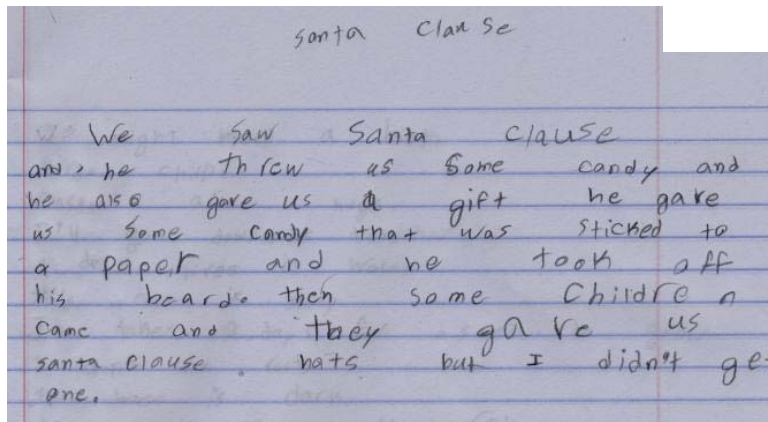 Santa Clause
We saw Santa Clause
and, he threw us some candy and
he also gave us a gift he gave
us some candy that was sticked to
a paper and he took off
his beard. then some Children
Came and they gave us
santa clause. hats but I didn't ge
one.